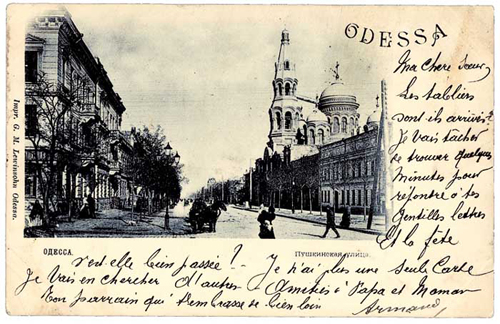 ODESSA
Ma chère sœur,
Les tabliers
sont-ils arrivés?
Je vais tâcher
de trouver quelques
minutes pour
répondre à tes
gentilles lettres
Et la fête
s'est elle bien passée? Je n'ai plus une seule Carte
Je vais en chercher d'autres Amitiés à Papa et Maman
Ton parrain qui t'embrasse de bien loin
Armand
ОДЕССА.
Пушкинская улица.
Impr. G. M. Lewinsohn Odessa.